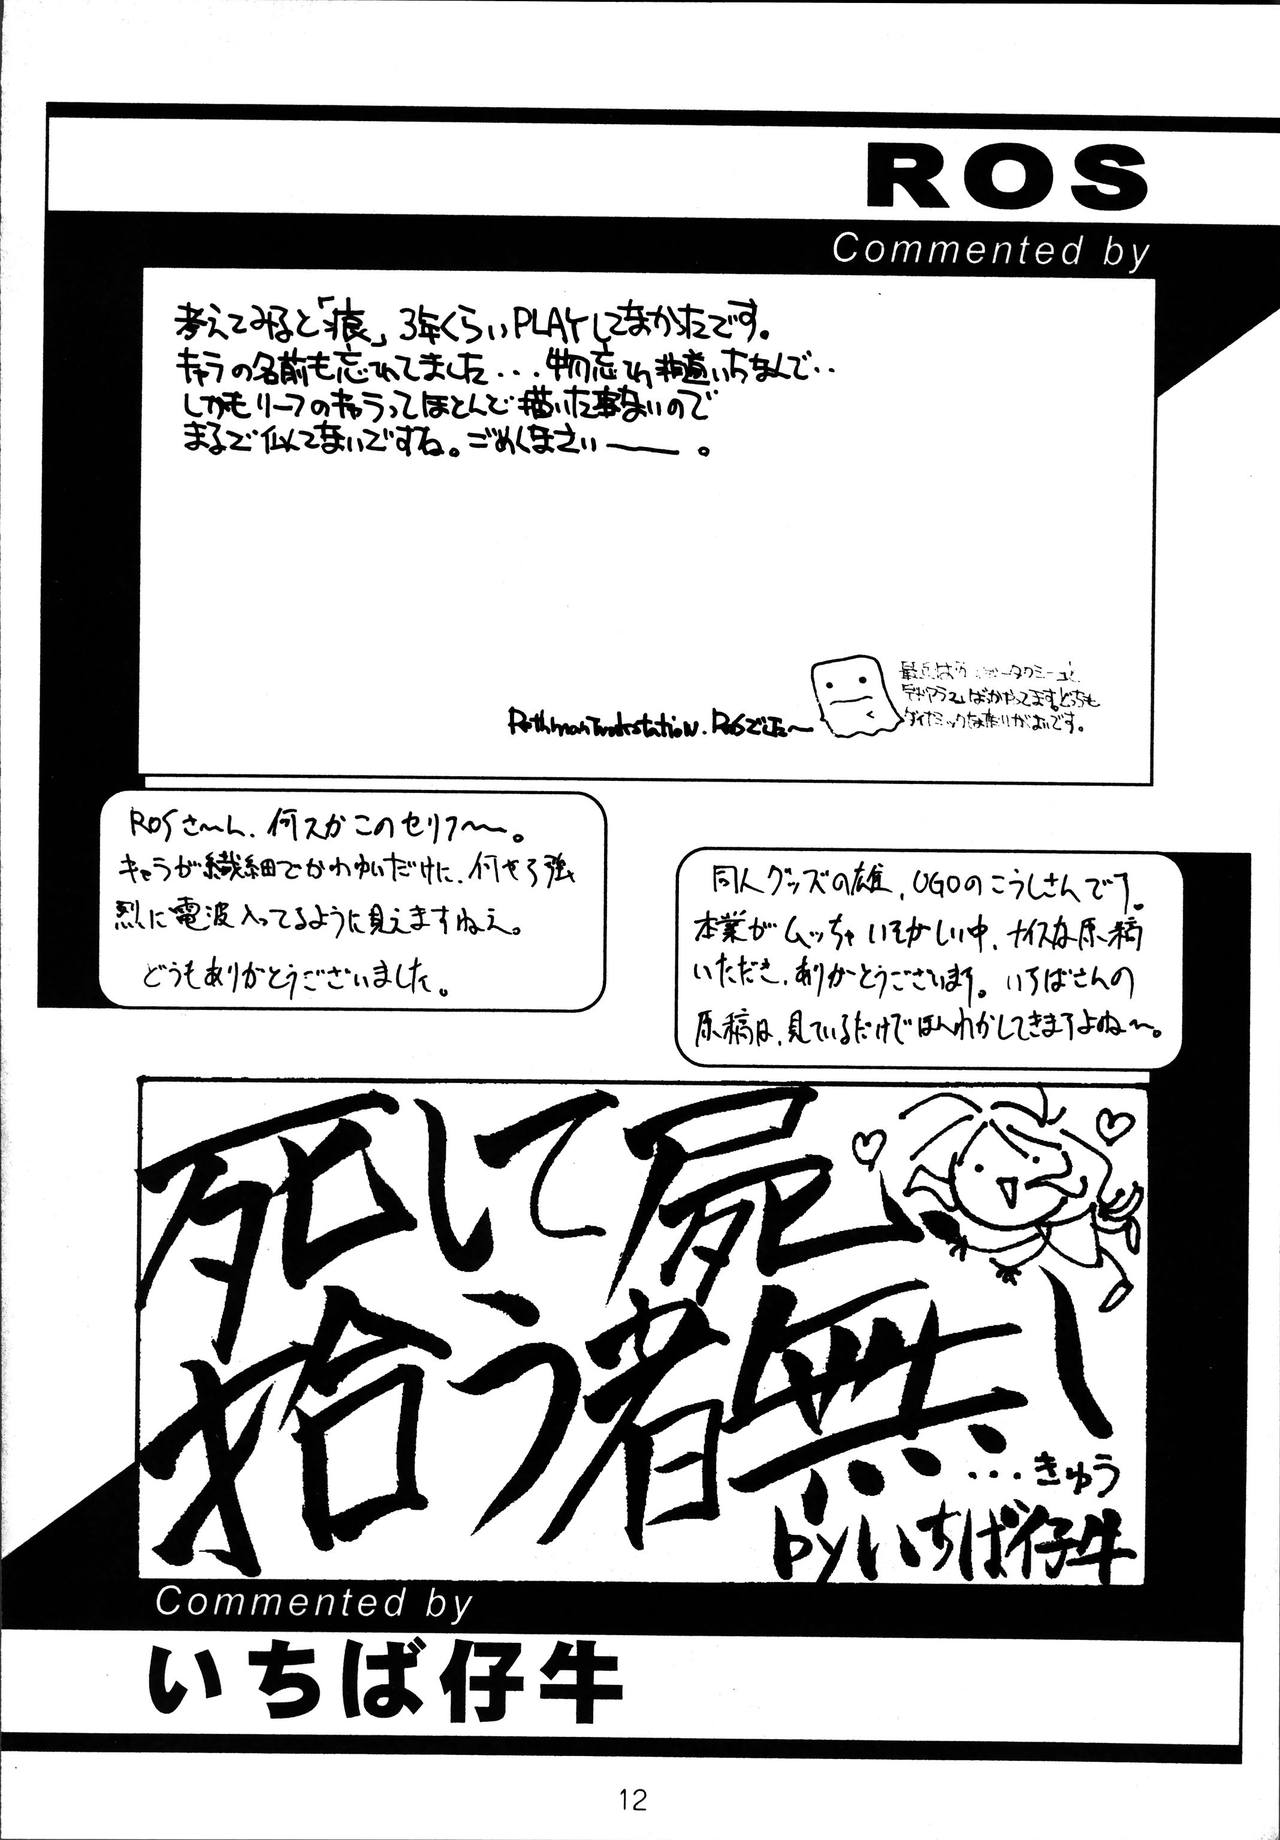 ROS
Commented by
考えてみると「痕」3年くらいPLAYしてなかったです。
キャラの名前も忘れてました...物忘れ街道いちなんで‥
しかもリーフのキャラってほとんど描いた事ないので
まるで似てないですね。ごめんくなさい――。
ばかやってます。どっちも
ダイナミックな乗りがよいです。
ROSでした〜
ROSさ〜ん、何スかこのセリフ〜〜。
キャラが繊細でかわゆいだけに、何やら強
烈に電波入ってるように見えますねえ。
どうもありがとうございました。
同人グッズの雄、UGOのこうしさんです。
本業がムッちゃいそがしい中、ナイスな原稿
いただき、ありがとうございます。いちばさんの
原稿は、見ているだけでほんわかしてきますよね〜。
死して屍
拾う者無し
...きゅう
byいちば仔牛
Commented by
いちば仔牛
12